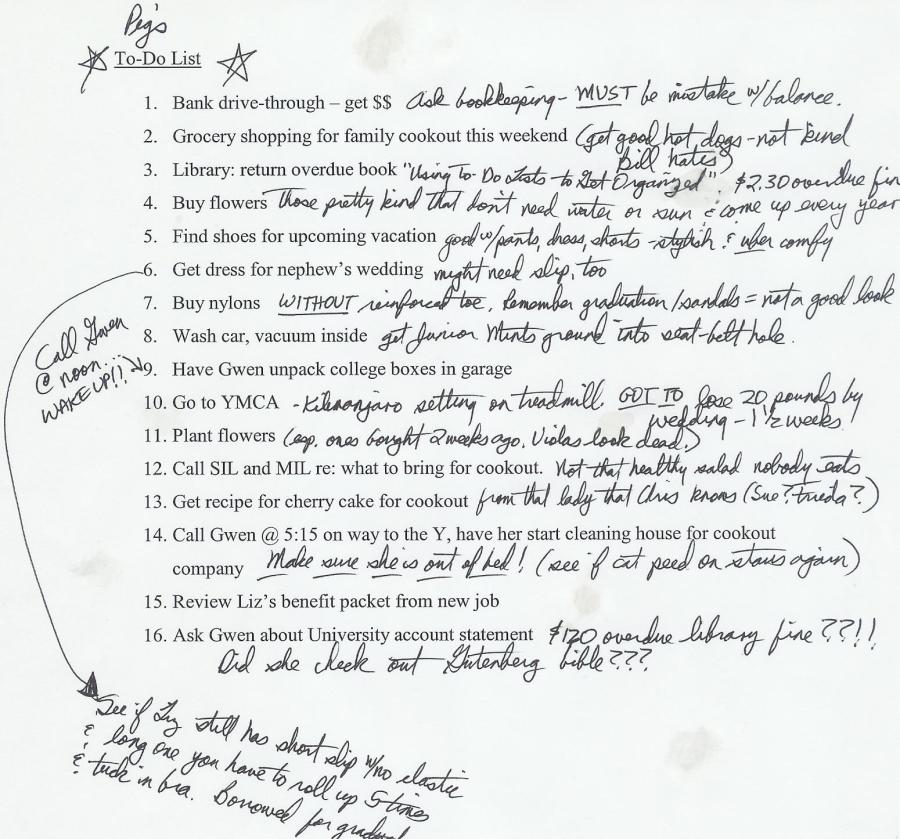 Peg's
To-Do List
1. Bank drive-through – get $$ Ask bookkeeping - MUST be mistake w/balance.
2. Grocery shopping for family cookout this weekend (get good hot dogs - not kind
Bill hates)
3. Library: return overdue book "Using To-Do Lists to Get Organized". $2.30 overdue fin
4. Buy flowers Those pretty kind that don't need water or sun & come up every year
5. Find shoes for upcoming vacation good w/pants, dress, shorts - stylish & uber comfy
6. Get dress for nephew's wedding might need slip, too
7. Buy nylons WITHOUT reinforced toe. Remember graduation/sandals = not a good look
8. Wash car, vacuum inside get Junior Mints ground into seat-belt hole.
Call Gwen
@ noon...
WAKE UP!!
9. Have Gwen unpack college boxes in garage
10. Go to YMCA - Kilimanjaro setting on treadmill. GOT TO lose 20 pounds by
wedding - 1 1/2 weeks!
11. Plant flowers (esp. ones bought 2 weeks ago. Violas look dead.)
12. Call SIL and MIL re: what to bring for cookout. Not that healthy salad nobody eats
13. Get recipe for cherry cake for cookout from that lady that Chris knows (Sue? Frieda?)
14. Call Gwen @ 5:15 on way to the Y, have her start cleaning house for cookout
company Make sure she is out of bed! (see if cat peed on stairs again)
15. Review Liz's benefit packet from new job
16. Ask Gwen about University account statement $120 overdue library fine??!!
Did she check out Gutenberg bible???
See if Liz still has short slip w/no elastic
& long one you have to roll up 5 times
& tuck in bra. Borrowed for